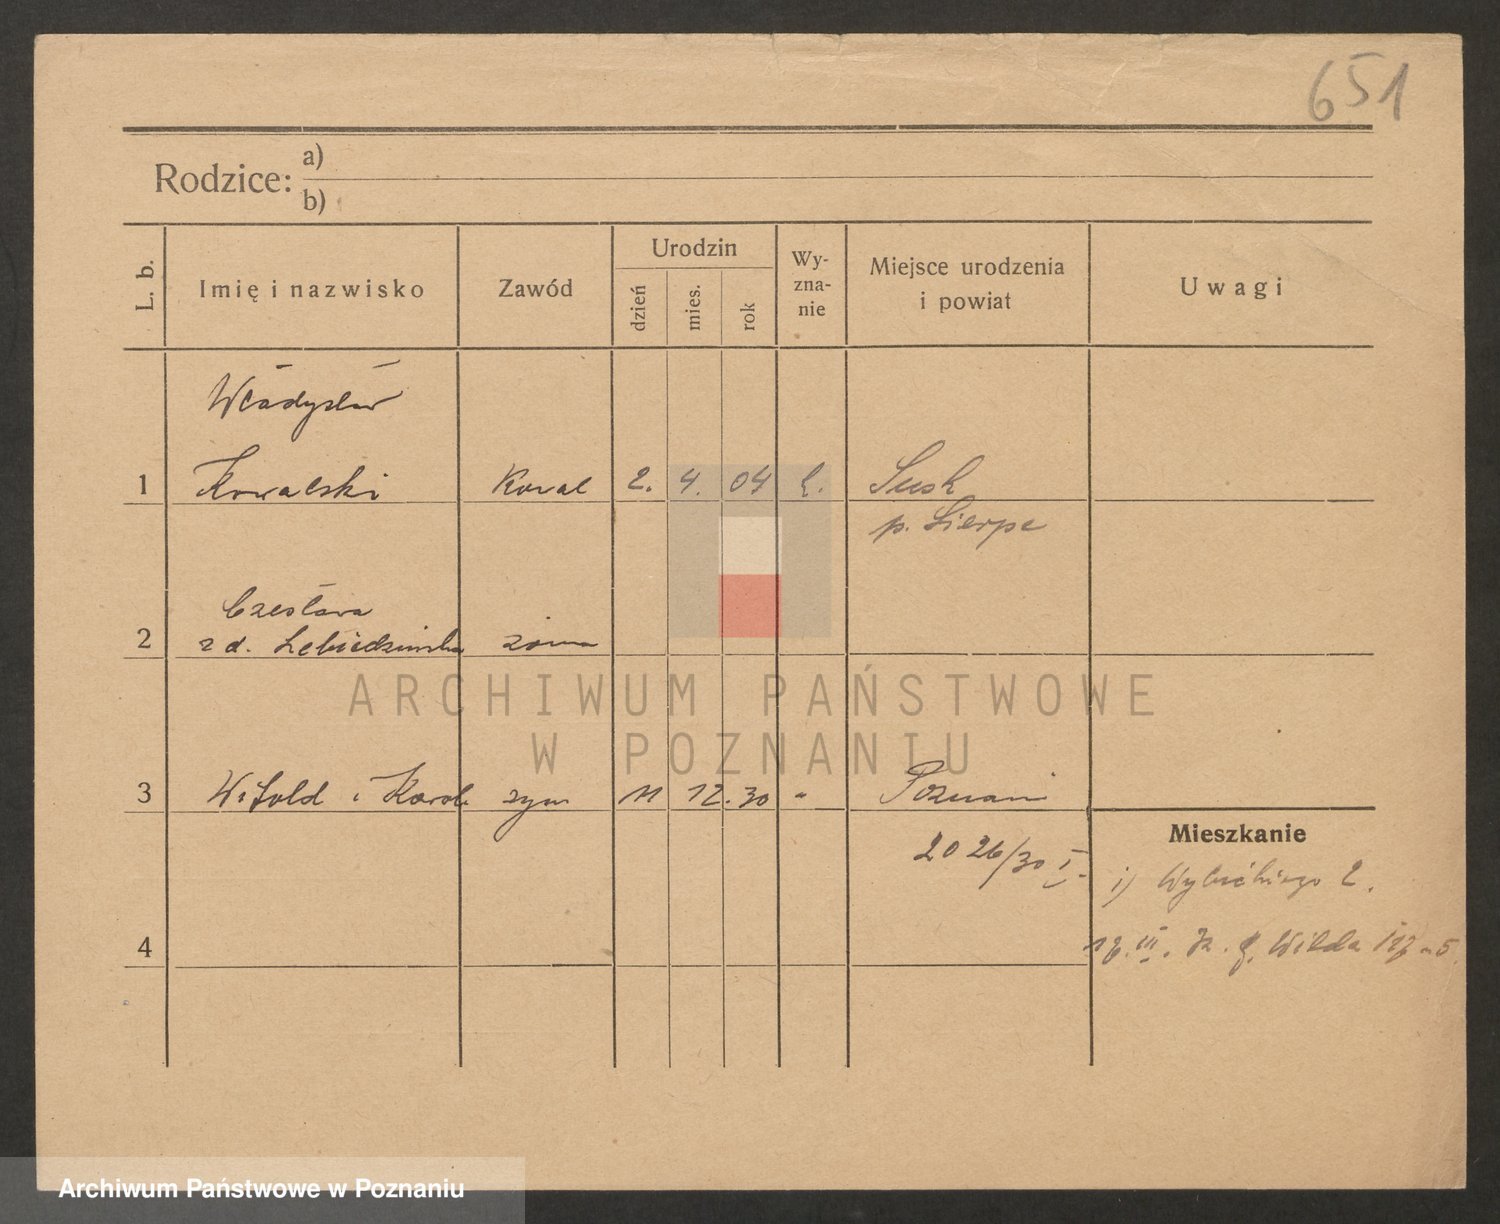 651
Rodzice: a)
b)
L. b.
Imię i nazwisko
Zawód
Urodzin
dzień
mies.
rok
Wy-
zna-
nie
Miejsce urodzenia
i powiat
Uwagi
Władysław
1 Kowalski Koval 2. 4. 04 Susk
p. Sierpc
Czesława
2 z d. żona
3 Witold i Karol syn 11 12. 30 " Poznań
2026/30 I.
4
Mieszkanie
1) Wybickiego 2.
III. Wilda
ARCHIWUM PAŃSTWOWE
W POZNANIU
Archiwum Państwowe w Poznaniu